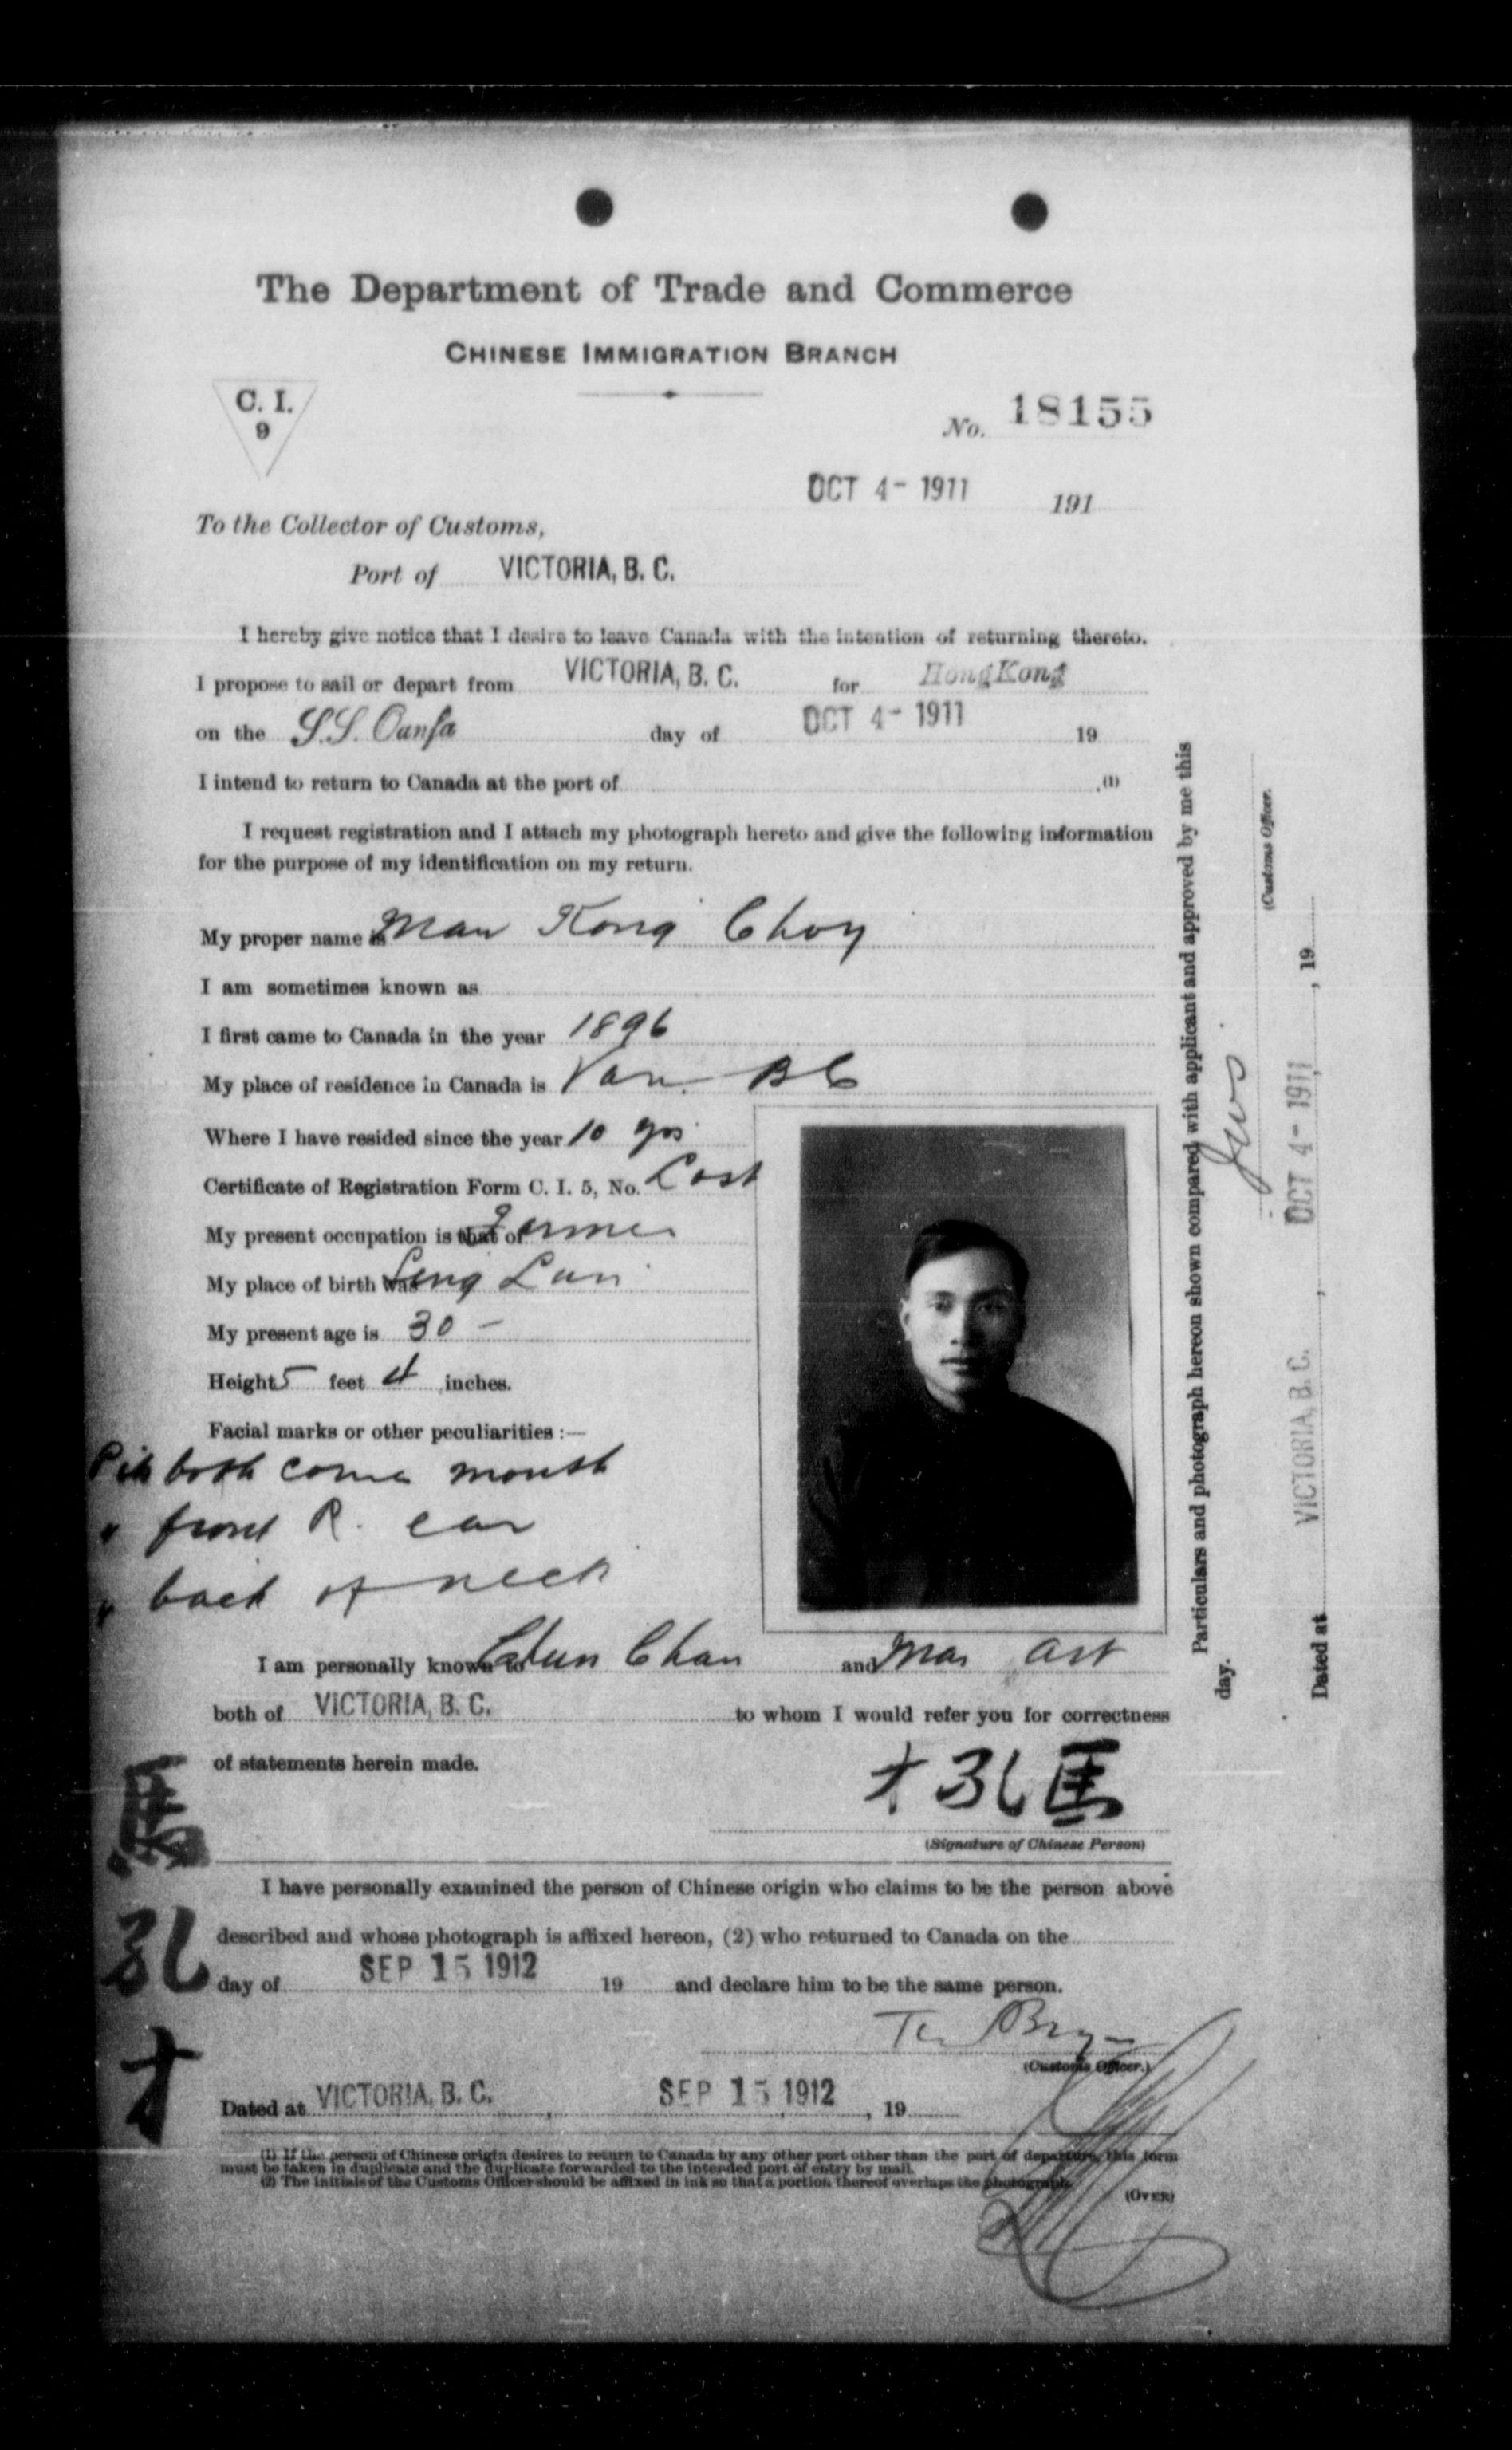 The Department of Trade and Commerce
CHINESE IMMIGRATION BRANCH
C. I.
9
No. 18155
OCT 4- 1911 191
To the Collector of Customs,
Port of VICTORIA, B. C.
I hereby give notice that I desire to leave Canada with the intention of returning thereto.
I propose to sail or depart from VICTORIA, B. C. for Hong Kong
on the S.S. Oanfa day of OCT 4- 1911 19
I intend to return to Canada at the port of .(1)
I request registration and I attach my photograph hereto and give the following information
for the purpose of my identification on my return.
My proper name is Mar Kong Choy
I am sometimes known as
I first came to Canada in the year 1896
My place of residence in Canada is Van. BC
Where I have resided since the year 10 yrs
Certificate of Registration Form C. I. 5, No. Lost
My present occupation is that of Farmer
My place of birth was
My present age is 30 -
Height 5 feet 4 inches.
Facial marks or other peculiarities :—
Pit both corner mouth
" front R. ear
" back of neck
I am personally known to Chun Chan and Mar Art
both of VICTORIA, B. C. to whom I would refer you for correctness
of statements herein made.
才孔馬
(Signature of Chinese Person)
I have personally examined the person of Chinese origin who claims to be the person above
described and whose photograph is affixed hereon, (2) who returned to Canada on the
day of SEP 15 1912 19 and declare him to be the same person.
(Customs Officer.)
Dated at VICTORIA, B. C. , SEP 15 1912 , 19
(1) If the person of Chinese origin desires to return to Canada by any other port other than the port of departure, this form
must be taken in duplicate and the duplicate forwarded to the intended port of entry by mail.
(2) The initials of the Customs Officer should be affixed in ink so that a portion thereof overlaps the photograph.
(OVER)
馬孔才
Particulars and photograph hereon shown compared with applicant and approved by me this
day.
(Customs Officer.
Dated at VICTORIA, B. C. , OCT 4- 1911 , 19